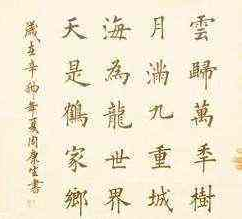 雲歸萬年樹
月滿九重城
海為龍世界
天是鶴家鄉
歲在辛孟夏周康書